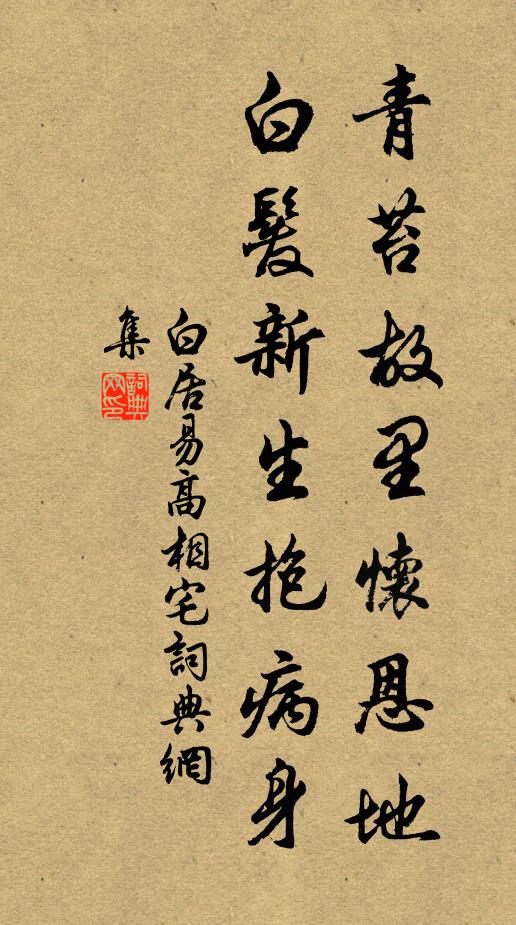 青苔故里懷恩地
白髮新生抱病身
白居易高相宅詞典網
集
詞典
網印